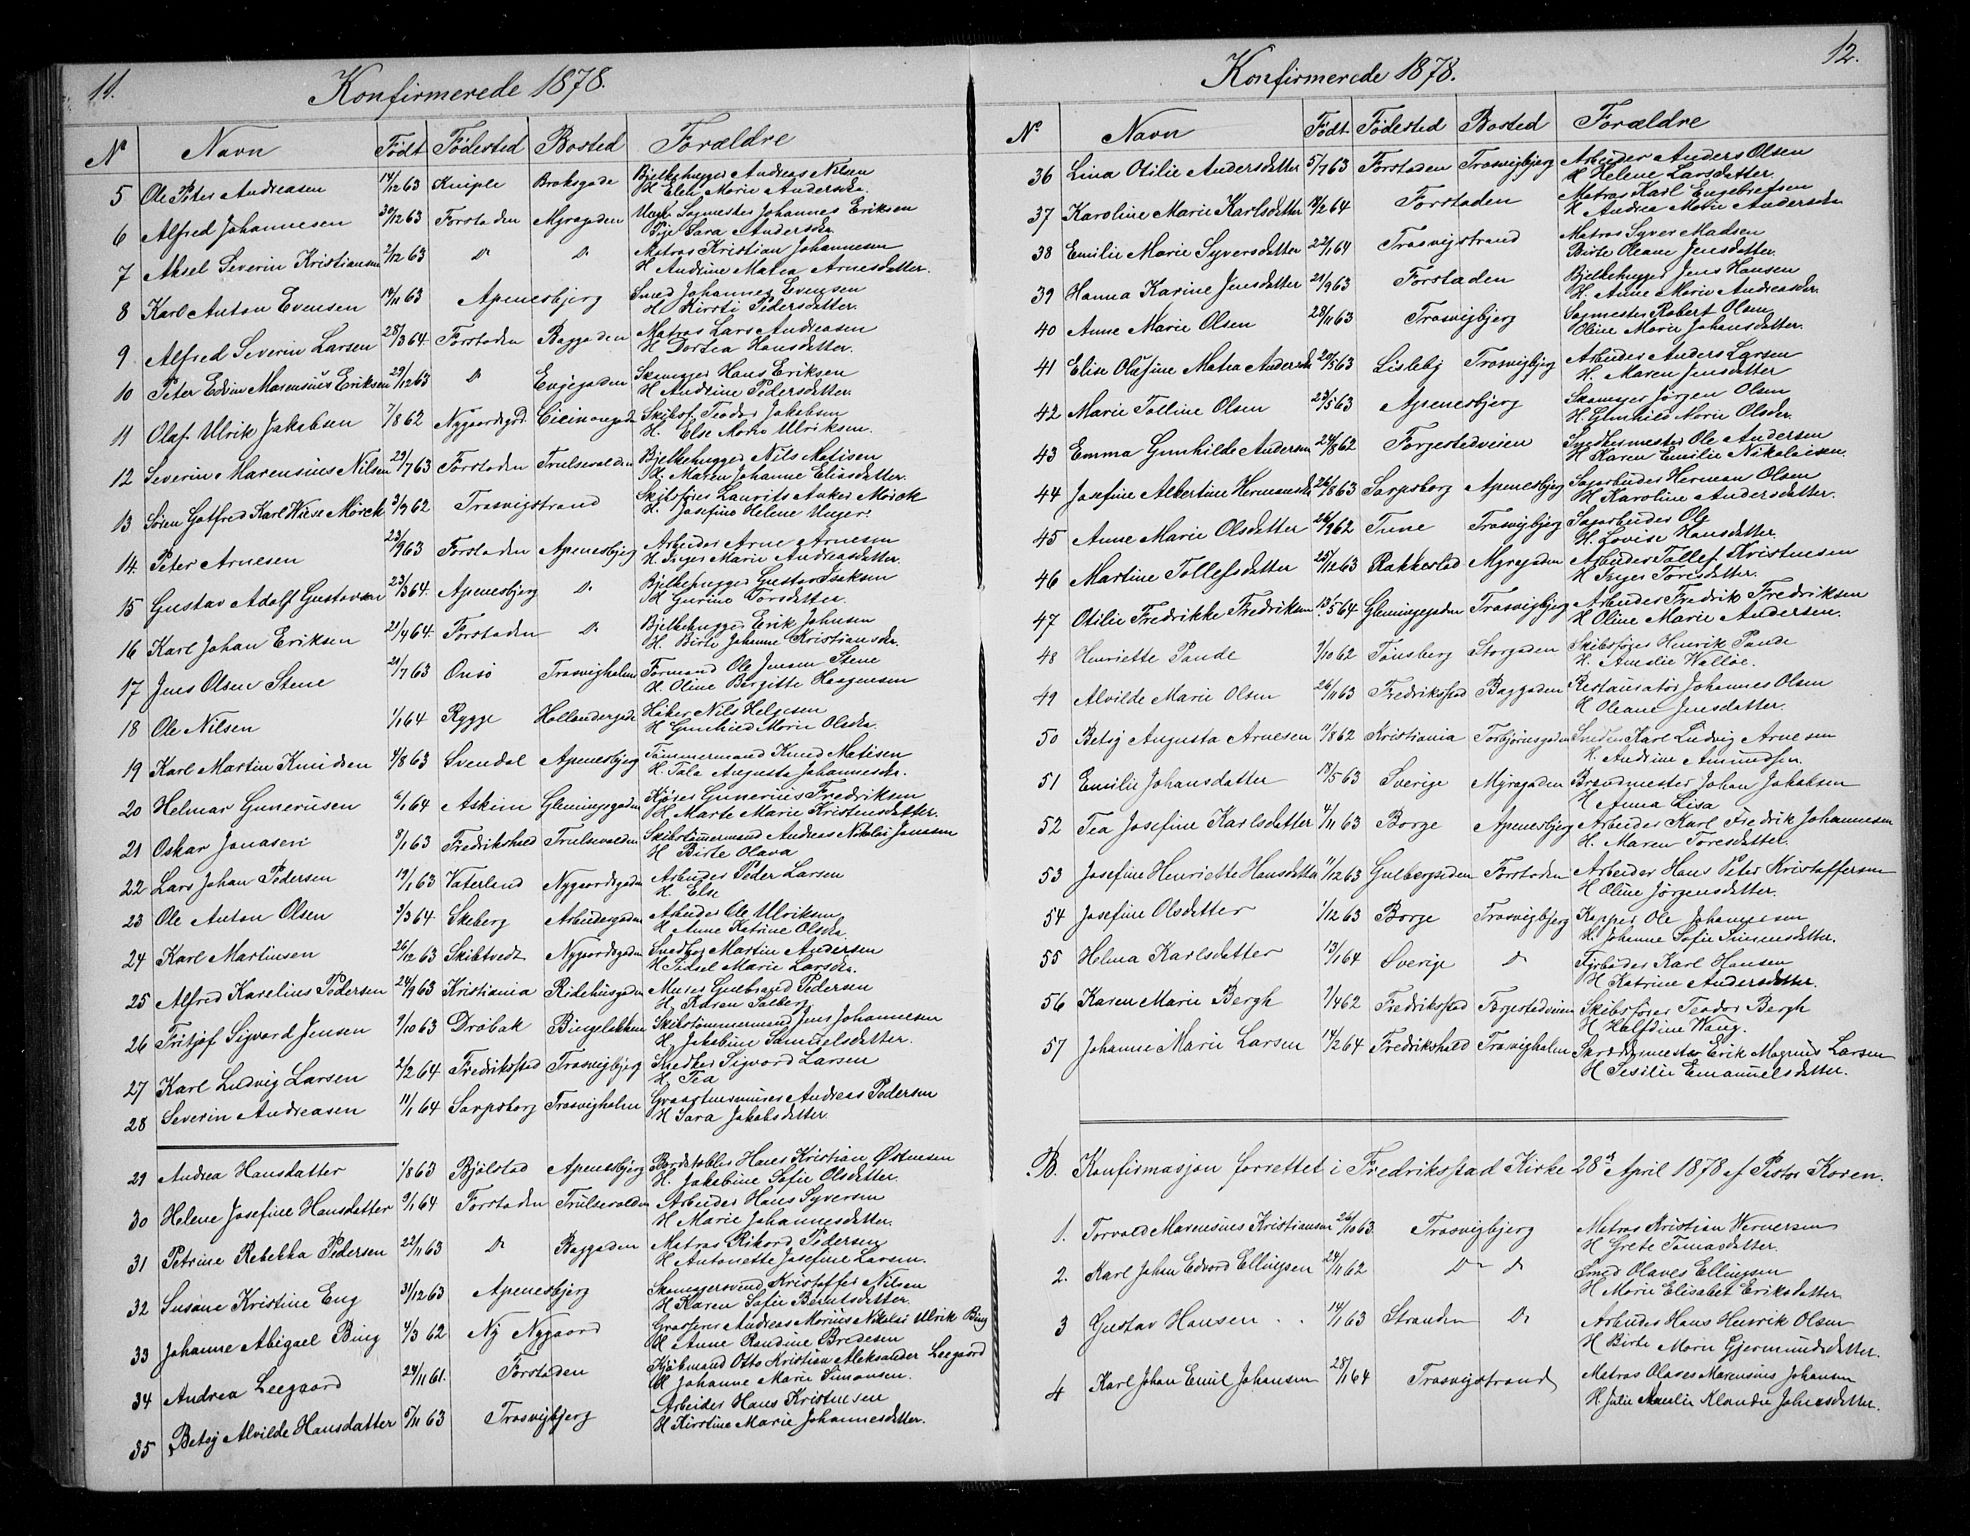 11.
Konfirmerede 1878.
N° Navn Født Fødested Bosted Forældre
5 Ole Peter Andreasen 14/12 63 Kniple Broksgade Bjelkehugger Andreas Nilsen
H Elen Marie Andersda.
6 Alfred Johannesen 30/12 63 Forstaden Myragaden Sagmester Johannes Eriksen
Pige Sara Andersda.
7 Aksel Severin Kristiansen 2/12 63 Do Do Matros Kristian Johannesen
H Andrine Matea Arnesdatter.
8 Karl Anton Evensen 14/11 63 Apenesbjerg Smed Johannes Evensen
H Kirsti Pedersdatter.
9 Alfred Severin Larsen 28/3 64. Forstaden Baggaden Matros Lars Andreasen
H Dortea Hansdatter.
10 Peter Edvin Marensius Eriksen 29/12 63 Do Engegaden Skomager Hans Eriksen
H Andrine Pedersdatter.
11 Olaf Ulrik Jakobsen 7/8 62 Nygaardsgd. Cicinongade Skibsf. Teodor Jakobsen
H. Else Marie Ulriksen.
12 Severin Marensius Nilsen 23/7 63 Forstaden Trulsevolden Bjelkehugger Nils Matisen
H. Maren Johanne Eliasdatter.
13 Søren Gotfred Karl Wiese Mørck 3/9 62 Trosvigstrand Skibsfører Laurits Anker Mørck
H. Josefine Helene Unger.
14. Peter Arnesen 23/9 63 Forstaden Apenesbjerg Arbeider Arne Arnesen
H. Inger Marie Andreasdatter.
15 Gustav Adolf Gustavsen 23/3 64. Apenesbjerg Do Bjelkehugger Gustav Isaksen
H Gurine Torsdatter.
16 Karl Johan Eriksen 21/4 64. Forstaden Do Bjelkehugger Erik Johnsen
H. Birte Johanne Kristiansda.
17 Jens Olsen Stene 21/7 63 Onsø Trosvigholmen Formand Ole Jensen Stene
H. Oline Birgitte Haagensen
18 Ole Nilsen 1/1 64 Rygge Hollendergade Høker Nils Helgesen
H Gunhild Marie Olsda.
19 Karl Martin Knudsen 4/8 63 Svendal Apenesbjerg Tømmermand Knud Matisen
H. Tala Augusta Johannesdr.
20 Helmar Gunerusen 6/1 64 Askim Glemingegaden Kjører Gunerius Fredriksen
H Marte Marie Kristensdatter.
21 Oskar Jonasen 8/1 63 Fredrikshald Trulsevolden Skibstømmermand Andreas Nikolai Jonasen
H Birte Olava
22 Lars Johan Pedersen 19/1 63 Vaterland Nygaardsgaden Arbeider Peder Larsen
H. Else
23 Ole Anton Olsen 3/3 64. Skeberg Arbeidergaden Arbeider Ole Ulriksen
H Anne Katrine Olsda.
24 Karl Martinsen 26/12 63 Skibtvedt Nygaardsgaden Snedker Martin Andersen
H Sidsel Marie Larsda.
25 Alfred Karelius Pedersen 24/9 63 Kristiania Ridehusgaden Murer Gulbrand Pedersen
H. Karen Solberg
26 Fritjof Sigvard Jensen 9/10 63 Drøbak Bingeløkken Skibstømmermand Jens Johannesen
H. Jakobine Samuelsdatter.
27 Karl Ludvig Larsen 2/2 64 Fredrikstad Trosvigbjerg Snedker Sigvard Larsen
H. Tea
28 Severin Andreasen 11/1 64 Sarpsborg Trosvigholm Graastensmurer Andreas Pedersen
H Sara Jakobsdatter
29 Andrea Hansdatter 1/8 63 Bjølstad Apenesbjerg Bordstabler Hans Kristian Østensen
H. Jakobine Sofie Olsdatter.
30 Helene Josefine Hansdatter 9/1 64 Forstaden Trulsevolden Arbeider Hans Syversen
H Marie Johannesdatter.
31 Petrine Rebekka Pedersen 22/11 63 Do Baggaden Matros Rikard Pedersen
H Antonette Josefine Larsen.
32 Susane Kristine Eng 31/12 63 Apenesbjerg Skomagersvend Kristoffer Nilsen
H Karen Sofie Berntsdatter.
33 Johanne Abigael Bing 4/3 62 Ny Nygaard Grosserer Andreas Morius Nikolai Ulrik Bing
H Anne Randine Bredesen
34 Andrea Leegaard 24/11 61. Forstaden Kjøbmand Otto Kristian Aleksander Leegaard
H Johanne Marie Simonsen.
35 Betsy Alvilde Hansdatter 5/11 63 Trosvigbjerg Arbeider Hans Kristensen
H Kirstine Marie Johannesdatter.
12.
Konfirmerede 1878.
N° Navn Født. Fødested Bosted Forældre
36 Lina Otilie Andersdatter 5/7 63 Forstaden Trosvigbjerg Arbeider Anders Olsen
H Helene Larsdatter.
37 Karoline Marie Karlsdatter 11/2 64 Forstaden Matros Karl Engebretsen
H Andrea Marie Andersda
38 Emilie Marie Syversdatter 22/1 64 Trosvigstrand Matros Syver Madsen
Birte Oleane Jensdatter.
39 Hanna Karine Jensdatter 21/9 63 Forstaden Bjelkehugger Jens Hansen
H. Anne Marie Andreasdr.
40 Anne Marie Olsen 23/11 63 Trosvigbjerg Sagmester Robert Olsen
Oline Marie Johansdatter.
41 Elise Olafine Matea Andersda 20/5 63 Lisleby Trosvigbjerg Arbeider Anders Larsen
H. Maren Jensdatter
42 Marie Tolline Olsen 23/5 63 Apenesbjerg Skomager Jørgen Olsen
H. Gunhild Marie Olsdr.
43 Emma Gunhilde Andersen 24/8 62 Torgestedveien Snedkermester Ole Andersen
H Karen Emilie Nikolaisen.
44 Josefine Albertine Hermansda 26/8 63 Sarpsborg Apenesbjerg Sagarbeider Herman Olsen
H Karoline Andersdatter.
45 Anne Marie Olsdatter 26/9 62 Tune Trosvigbjerg Sagarbeider Ole
H. Lovise Hansdatter.
46 Martine Tollefsdatter 25/12 63 Rakkestad Myragaden Arbeider Tollef Kristensen
H Inger Toresdatter.
47 Otilie Fredrikke Fredriksen 13/5 64 Glemingegaden Trosvigbjerg Arbeider Fredrik Fredriksen
H Oline Marie Andersen.
48 Henriette Pande 1/10 62 Tønsberg Storgaden Skibsfører Henrik Pande
H. Amelie Walløe.
49 Alvilde Marie Olsen 26/11 63 Fredrikstad Baggaden Restauratør Johannes Olsen
H Oleane Jensdatter.
50 Betsy Augusta Arnesen 11/8 62 Kristiania Torbjørnsgaden Snedker Karl Ludvig Arnesen
H. Andrine Amundsen.
51 Emilie Johansdatter 17/5 63 Sverige Myragaden Brandmester Johan Jakobsen
H Anna Lisa
52 Tea Josefine Karlsdatter 4/11 63 Borge Apenesbjerg Arbeider Karl Fredrik Johannesen
H. Maren Toresdatter.
53 Josefine Henriette Hansdatter 11/12 63 Gulbergsiden Forstaden Arbeider Hans Peter Kristoffersen
H Oline Jørgensdatter.
54 Josefine Olsdatter 1/12 63 Borge Trosvigbjerg Kopper Ole Johannesen
H. Johanne Sofie Simensdatter.
55 Helma Karlsdatter 13/1 64 Sverige Do Fyrbøder Karl Hansen
H Katrine Andersdatter.
56 Karen Marie Bergh 7/4 62 Fredrikstad Torgestedveien Skibsfører Teodor Bergh
H Halfdine Wang.
57 Johanne Marie Larsen 14/2 64 Fredrikshald Trosvigholmen Skræddermester Erik Magnus Larsen
H Tesilie Emanuelsdatter.
B. Konfirmasjon forrettet i Fredrikstad Kirke 28de April 1878 af Pastor Koren.
1. Torvald Marensius Kristiansen 26/10 63 Trosvigbjerg Matros Kristian Wernersen
H Grete Tomasdatter.
2. Karl Johan Edvard Ellingsen 24/11 62 Do Do Smed Olaves Ellingsen
H Marie Elisabet Eriksdatter.
3 Gustav Hansen 14/1 63 Stranden Do Arbeider Hans Henrik Olsen
H Birte Marie Gjermundsdatter.
4 Karl Johan Emil Johansen 28/1 64 Trosvigstrand Matros Olaves Marensius Johansen
H Julie Amalie Klaudie Johnesdatter.